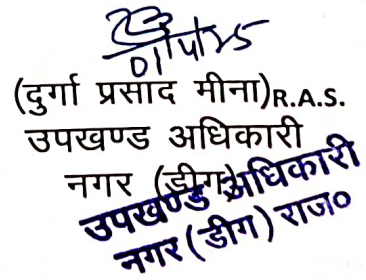 01/4/25
(दुर्गा प्रसाद मीना)R.A.S.
उपखण्ड अधिकारी
नगर (डीग)
उपखण्ड अधिकारी
नगर (डीग) राज०